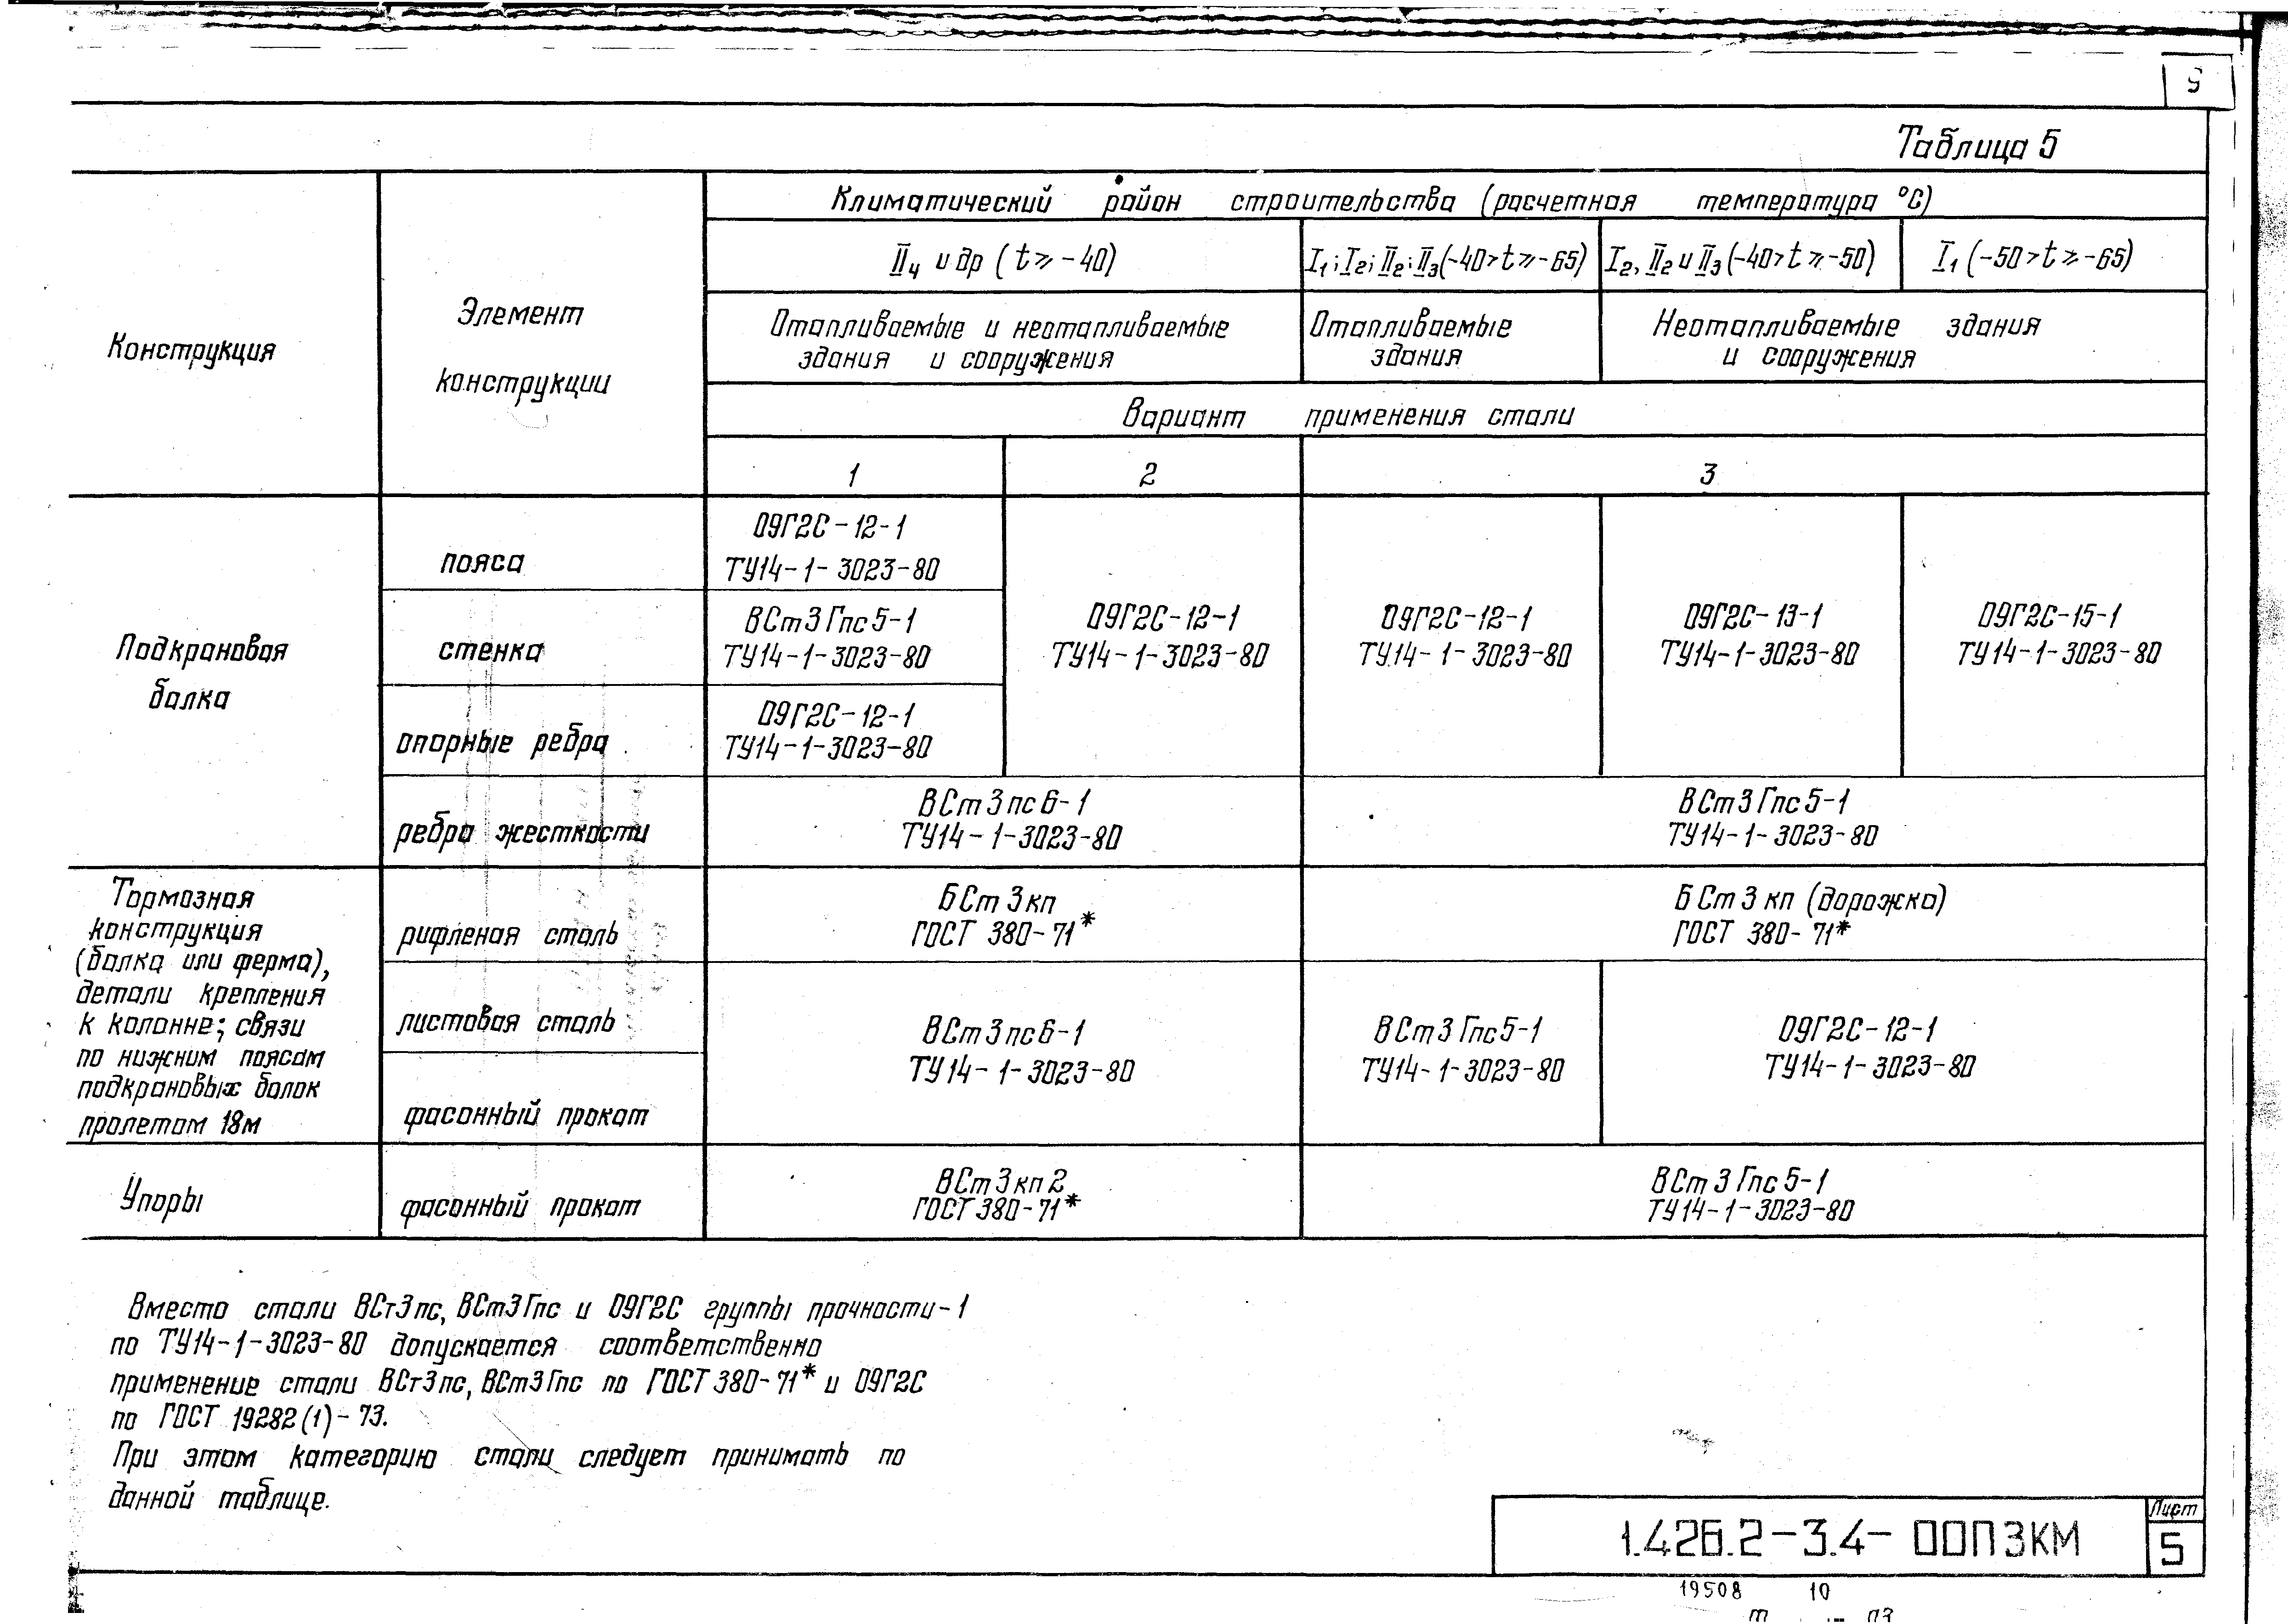 9
Таблица 5
Конструкция
Элемент
конструкции
Климатический район строительства (расчетная температура °С)
II₄ и др (t ⩾ -40)
I₁; I₂; II₂; II₃ (-40 > t ⩾ -65)
I₂, II₂ и II₃ (-40 > t ⩾ -50)
I₁ (-50 > t ⩾ -65)
Отапливаемые и неотапливаемые
здания и сооружения
Отапливаемые
здания
Неотапливаемые здания
и сооружения
Вариант применения стали
1
2
3
Подкрановая
балка
пояса
09Г2С-12-1
ТУ14-1-3023-80
стенка
ВСт3Гпс5-1
ТУ14-1-3023-80
опорные ребра
09Г2С-12-1
ТУ14-1-3023-80
09Г2С-12-1
ТУ14-1-3023-80
09Г2С-12-1
ТУ14-1-3023-80
09Г2С-13-1
ТУ14-1-3023-80
09Г2С-15-1
ТУ14-1-3023-80
ребра жесткости
ВСт3пс6-1
ТУ14-1-3023-80
ВСт3Гпс5-1
ТУ14-1-3023-80
Тормозная
конструкция
(балка или ферма),
детали крепления
к колонне; связи
по нижним поясам
подкрановых балок
пролетом 18м
рифленая сталь
БСт3кп
ГОСТ 380-71*
БСт3кп (дорожка)
ГОСТ 380-71*
листовая сталь
фасонный прокат
ВСт3пс6-1
ТУ14-1-3023-80
ВСт3Гпс5-1
ТУ14-1-3023-80
09Г2С-12-1
ТУ14-1-3023-80
Упоры
фасонный прокат
ВСт3кп2
ГОСТ 380-71*
ВСт3Гпс5-1
ТУ14-1-3023-80
Вместо стали ВСт3пс, ВСт3Гпс и 09Г2С группы прочности-1
по ТУ14-1-3023-80 допускается соответственно
применение стали ВСт3пс, ВСт3Гпс по ГОСТ 380-71* и 09Г2С
по ГОСТ 19282(1)-73.
При этом категорию стали следует принимать по
данной таблице.
1.426.2-3.4-00ПЗКМ
Лист
5
19508 10